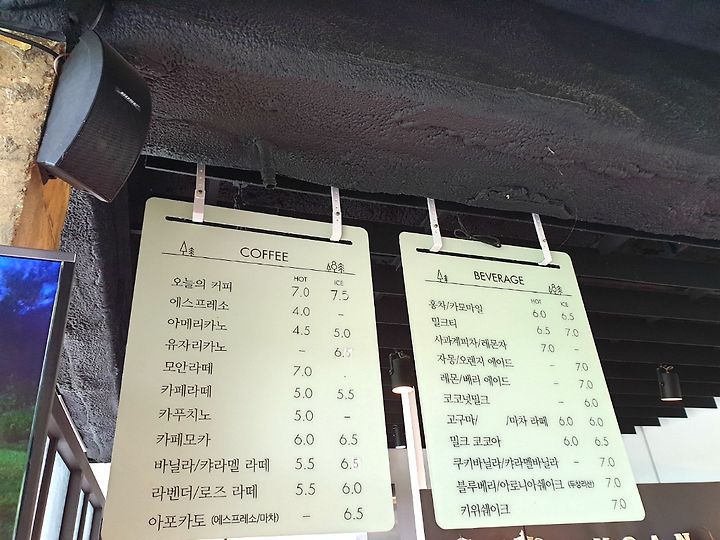 BOSE
COFFEE
HOT ICE
오늘의 커피 7.0 7.5
에스프레소 4.0 -
아메리카노 4.5 5.0
유자리카노 - 6.5
모안라떼 7.0 .
카페라떼 5.0 5.5
카푸치노 5.0 -
카페모카 6.0 6.5
바닐라/캬라멜 라떼 5.5 6.5
라벤더/로즈 라떼 5.5 6.0
아포카토 (에스프레소/마차) - 6.5
BEVERAGE
HOT ICE
홍차/카모마일 6.0 6.5
밀크티 6.5 7.0
사과계피차/레몬차 7.0 -
자몽/오렌지 에이드 - 7.0
레몬/베리 에이드 - 7.0
코코넛밀크 - 6.0
고구마/ /마차 라떼 6.0 6.0
밀크 코코아 6.0 6.5
쿠키바닐라/캬라멜바닐라 - 7.0
블루베리/아로니아쉐이크 (두살리산) 7.0
키위쉐이크 7.0